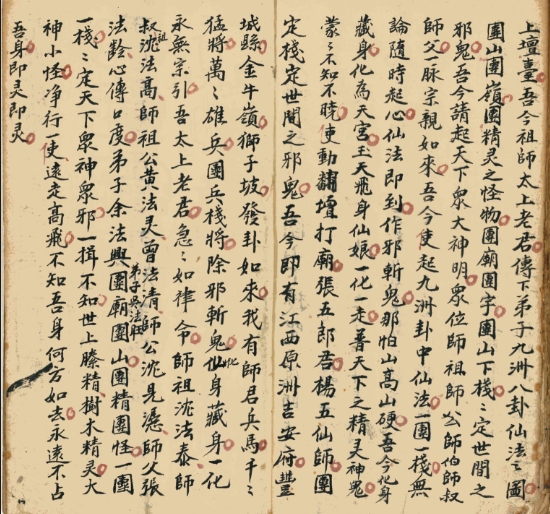 上壇臺吾今祖師太上老君傳下弟子九洲八卦仙法ミ圖
團山團嶺團精灵之怪物團廟團字團山下棧ミ定世間之
邪鬼吾今請起天下衆大神明衆位師祖師公師伯師叔
師父一脉宗親如來吾今使起九洲卦中仙法一團一棧無
論随時起心仙法即到作邪斬鬼那怕山高山硬吾今化身
藏身化為天宮玉天飛身仙娘一化一走普天下之精灵神鬼
蒙ミ不知不曉使動翻壇打廟張五郎君楊五仙師團
定棧定世間之邪鬼吾今即有江西原洲吉安府豊
城縣金牛嶺獅子坡發卦如來我有師君兵馬千ミ
猛將萬ミ雄兵團兵棧將除邪斬鬼化仙身藏身一化
永無宗引吾太上老君急ミ如律令師祖沈法泰師
叔沈法高師祖公黄法灵曾法清師公沈見憑師父張
法齡心傳口度弟子余法興團廟團山團精團怪一團
弟子吳法
一棧ミ定天下衆神衆邪一揖不知世上滕精樹木精灵大
神小怪净行一使遠走高飛不知吾身何方如去永遠不占
吾身即灵即灵